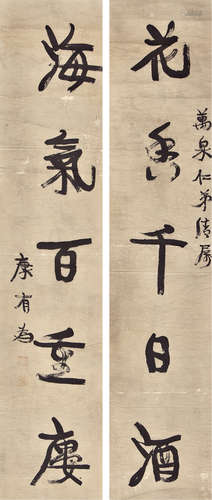 花香千日酒
萬泉仁弟清屬
海氣百重廔
康有為